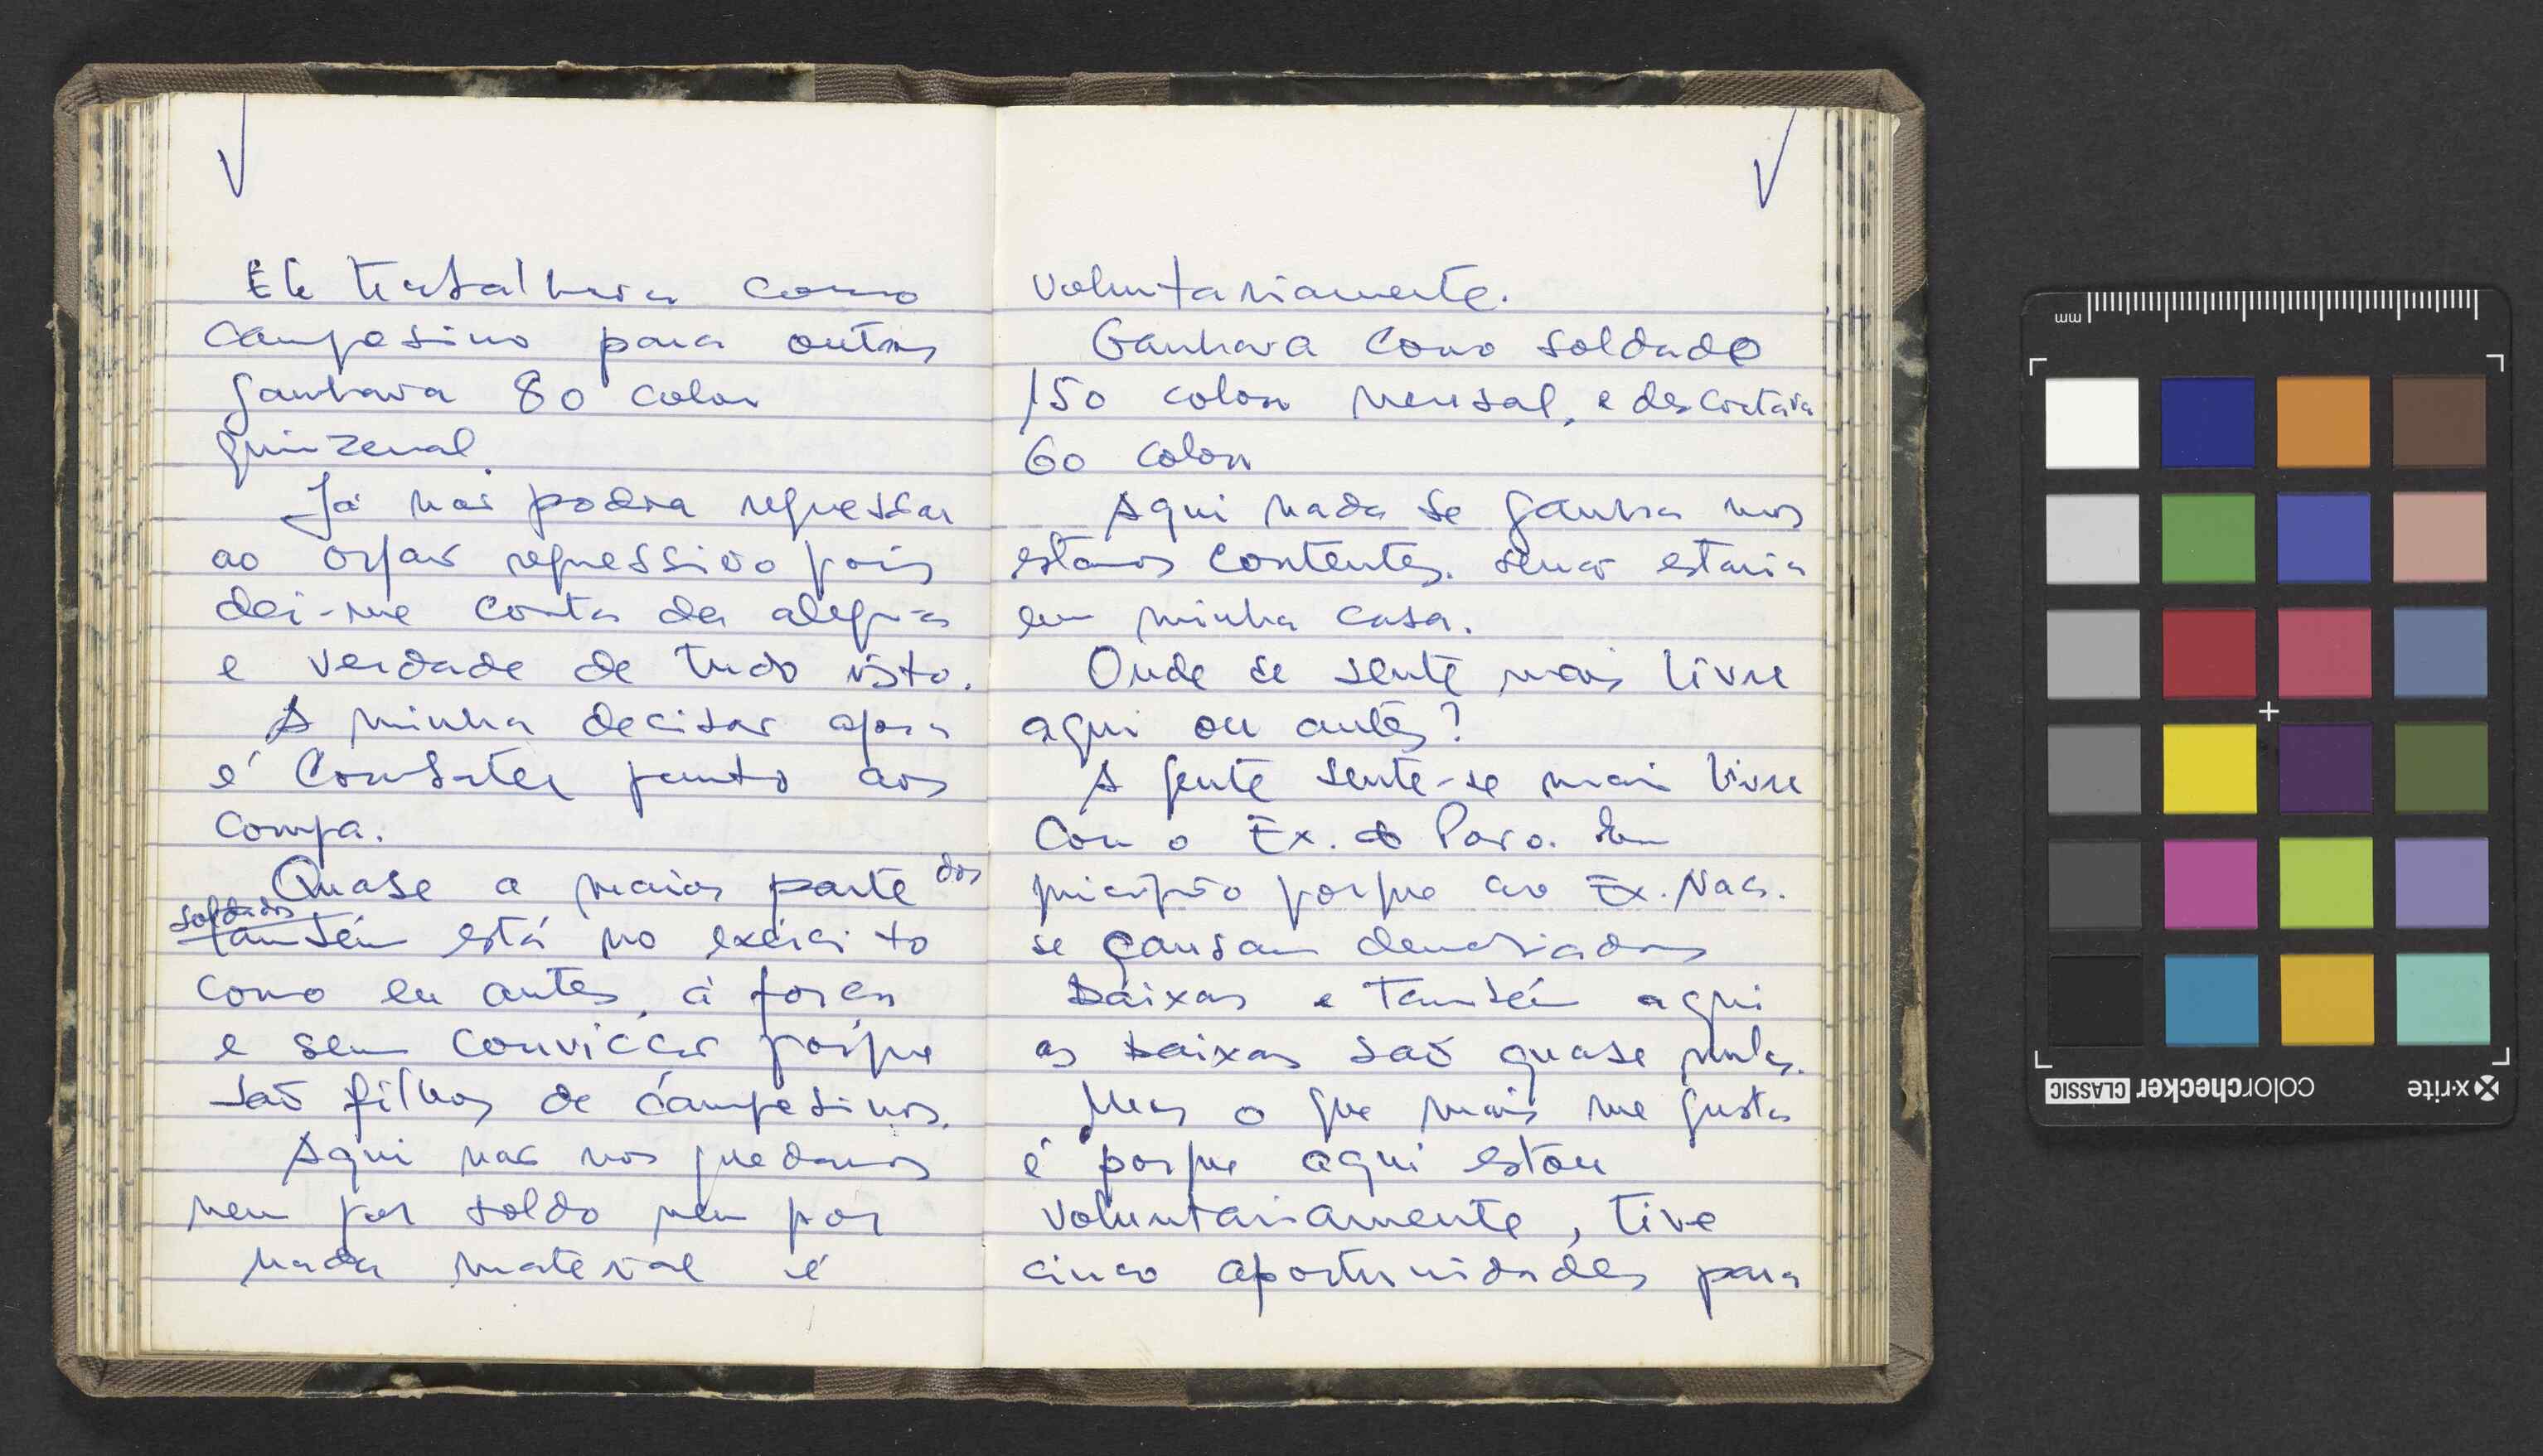 Ele trabalhava como
campesino para outros
ganhava 80 colon
quinzenal.
Já não podia regressar
ao orgão repressivo pois
dei-me conta da alegria
e verdade de tudo isto.
A minha decisão agora
é Combater junto aos
compa.
Quase a maior parte dos
soldados
também está no exército
como eu antes, à força
e sem convicção porque
são filhos de campesinos.
Aqui não nos quedamos
nem por soldo nem por
nada material é
voluntariamente.
Ganhava como soldado
150 colon mensal, e descontava
60 colon
Aqui nada se ganha mos
estamos contentes. senão estaria
em minha casa.
Onde se sente mais livre
aqui ou antes?
A gente sente-se mais livre
Com o Ex. do Povo. Em
principio porque ao Ex. Nac.
se causam demasiadas
baixas e também aqui
as baixas são quase nulas.
Mas o que mais me gusta
é porque aqui estou
voluntariamente, tive
cinco oportunidades para
mm
x-rite colorchecker CLASSIC